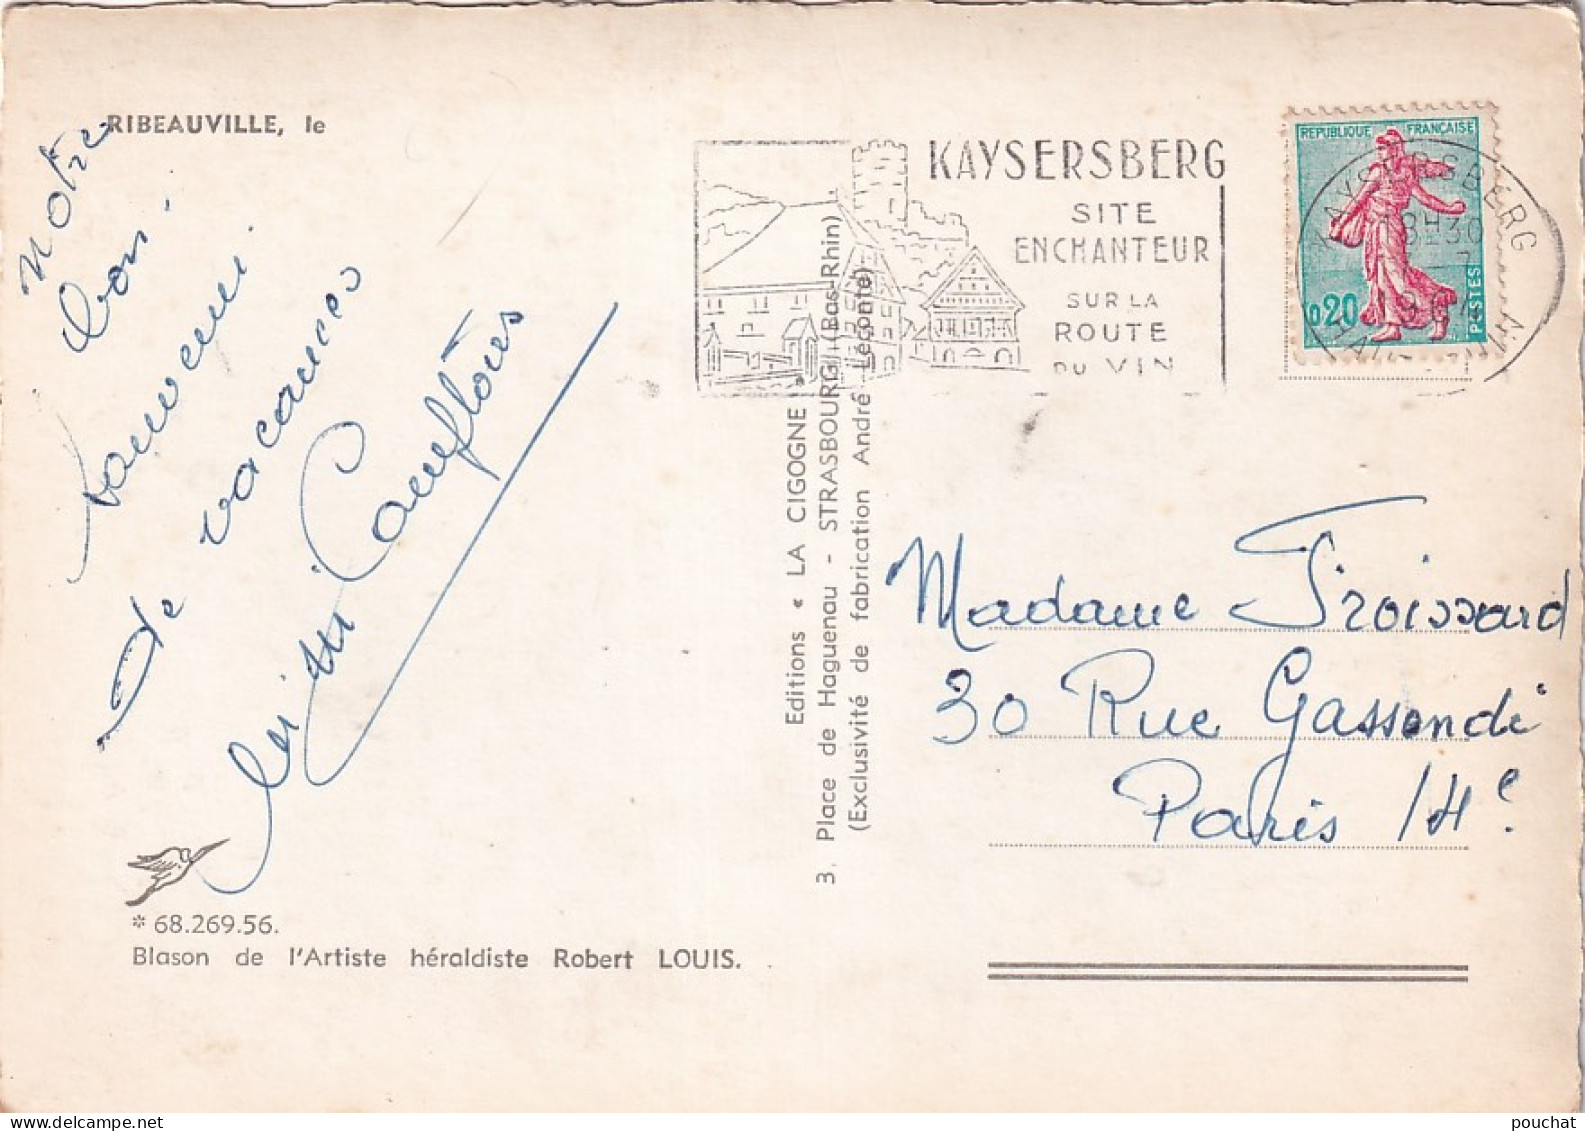 RIBEAUVILLE, le
Notre
bon
souvenir
de vacances
KAYSERSBERG
SITE
ENCHANTEUR
SUR LA
ROUTE
DU VIN
REPUBLIQUE FRANÇAISE
0,20
POSTES
KAYSERSBERG
18H30
1964
HAUT-RHIN
Editions « LA CIGOGNE »
3. Place de Haguenau - STRASBOURG (Bas-Rhin)
(Exclusivité de fabrication André Leconte)
Madame Froissard
30 Rue Gassendi
Paris 14e
* 68.269.56.
Blason de l'Artiste héraldiste Robert LOUIS.
pouchat